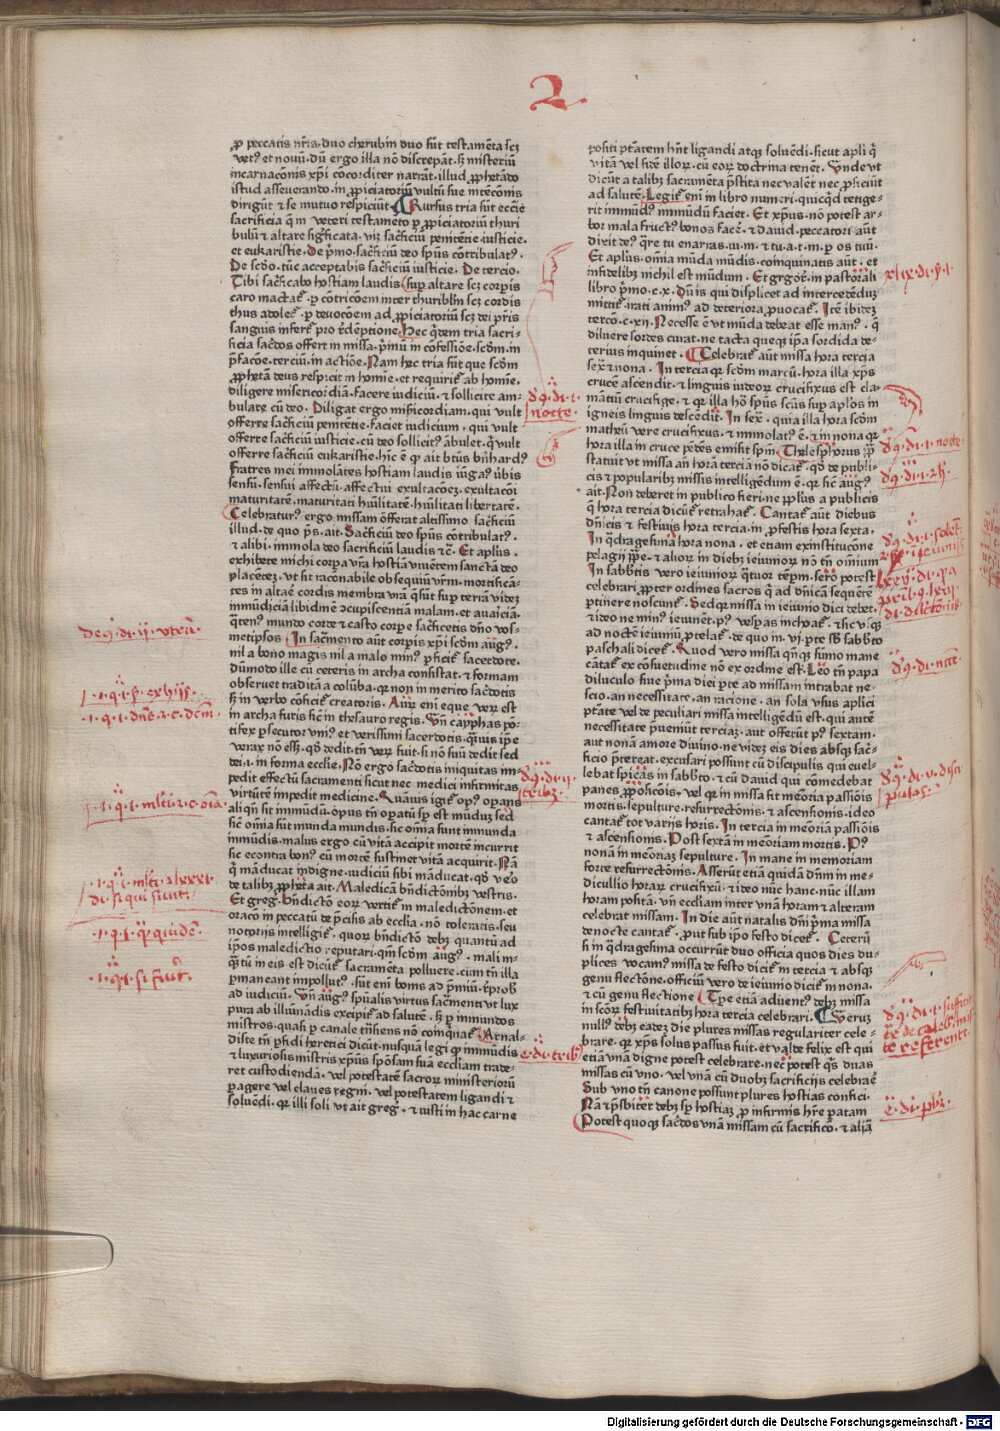 2
ꝓ peccatis nr̄is. duo cherubin duo sūt testamēta scꝫ
vetꝰ et nouū. dū ergo illa nō discrepāt. sꝫ misteriū
incarnacōnis xp̄i cōcorditer narrāt. illud ꝓphetādo
istud asseuerando. in ꝓpiciatoriū vultū sue intēcōnis
dirigūt ⁊ se mutuo respiciūt Rursus tria sūt eccl̄ie
sacrificia q̄ in veteri testamēto ꝑ ꝓpiciatoriū thuri
bulū ⁊ altare sigficata. viꝫ sac̄ficiū penitētie iusticie.
et eukaristie. De pͥmo. sac̄ficiū deo sp̄us cōtribulatꝰ.
De scd̄o. tūc acceptabis sac̄ficiū iusticie. De tercio.
Tibi sac̄ficabo hostiam laudis sup altare scꝫ corꝑis
caro mactat᷒. ꝑ cōtricōem inter thuriblm̄ scꝫ cordis
thus adolet᷒. ꝑ deuocōem ad ꝓpiciatoriū scꝫ dei pr̄is
sanguis infert᷒ pro r̄dēptione. Hec q̄dem tria sacri
ficia sac̄dos offert in missa. pͥmū in cōfessiōe. scd̄m. in
p̄facōe. terciū. in actiōe. Nam hec tria sūt que scd̄m
ꝓphetā deus respicit in homīe. et requirit ab homīe.
diligere misericordiā. facere iudiciū. ⁊ sollicite am-
bulare cū deo. Diligat ergo mīsc̄icordiam. qui vult
offerre sac̄ficiū penitētie. faciet iudicium. qui vult
offerre sac̄ficiū iusticie. cū deo sollicitꝰ ābulet. q̄ vult
offerre sac̄ficiū eukaristie. hīc ē ꝙ ait btūs bn̄hardꝰ
Fratres mei immolātes hostiam laudis iūgaꝰ ūbis
sensū. sensui affectū. affectui exultacōeꝫ. exultacōi
maturitatē. maturitati hūilitatē. hūilitati libertatē.
Celebraturꝰ ergo missam offerat altissimo sac̄ficiū
illud. de quo pͥs. ait. Sac̄ficiū deo sp̄us cōtribulatꝰ.
⁊ alibi. immola deo sacrificiū laudis ⁊c̄. Et aplūs.
exhibete michi corpa vr̄a hostiā viuētem sanctā deo
placētez. vt sit raconabile obsequiū vr̄m. mortificā-
tes in altaē cordis membra vr̄a q̄ sūt sup terrā videꝫ
immūdiciā libidinē ɔcupiscentiā malam. et auaiciā.
q̄tenꝰ mundo corde ⁊ casto corꝑe sac̄ficetis dn̄o vos-
metipsos In sac̄mento aūt corꝑis xp̄i scd̄m augꝰ.
nil a bono magis nil a malo minꝰ ꝑficit᷒ sacerdote.
dūmodo ille cū ceteris in archa consistat. ⁊ formam
obseruet traditā a colūba. qꝛ non in merito sac̄dotis
sꝫ in verbo cōficit᷒ creatoris. Auꝝ eni eque veꝝ est
in archa furis sic̄ in thesauro regis. Vn̄ cayphas pō-
tifex ꝑsecutor vniꝰ et verissimi sacerdotis. q̄uis ip̄e
verax nō ess̄. qd̄ dedit. tn̄ veꝝ fuit. si nō suū dedit sed
dei. i. in forma ecclie. Nō ergo sac̄dotis iniquitas im-
pedit effectū sacramenti sicut nec medici infirmitas
virtūtē impedit medicine. Quāuis igit᷒ opꝰ opans
aliqn̄ sit immūdū. opus tn̄ opatū sp̄ est mūduꝫ sed
sic̄ om̄ia sūt munda mundis. sic om̄ia sunt immunda
immūdis. malus ergo cū vitā accipit mortē incurrit
sic econtra bonꝰ cū mortē sustinet vitā acquirit. Nā
q̄ māducat indigne. iudiciū sibi māducat. qd̄ v̄o
de talibꝫ ꝓpheta ait. Maledicā bn̄dictōnibꝫ vestris.
Et greg᷒. bn̄dictō eoꝝ vertit᷒ in maledictōnem. et
oracō in peccatū de p̄cisis ab ecclia. nō toleratis. seu
notorijs intelligit᷒. quoꝝ bn̄dictō debꝫ quantū ad
ip̄os maledictio reputari. qm̄ scd̄m augꝰ. mali in
q̄tū in eis est dicūt᷒ sacramēta polluere. cum tn̄ illa
ꝑmaneant impollutꝰ. sūt eni bonis ad p̄miū. reprobꝰ
ad iudiciū. Vn̄ augꝰ. spūalis virtus sac̄menti vt lux
pura ab illuīnādis excipit᷒ ad salutē. sꝫ ꝑ immundos
mistros. quasi ꝑ canale trāsiens nō coinq̄nat᷒. Arnal-
diste tn̄ ꝑfidi heretici dicūt. nusquā legi ꝙ immūdis
⁊ luxuriosis mistris xp̄us spōsam suā eccliam trade-
ret custodiendā. vel potestatē sacroꝝ ministerioꝝ
ꝑagere vel claues regni. vel potestatem ligandi ⁊
soluēdi. qꝛ illi soli vt ait greg᷒. ⁊ iusti in hac carne
positi ptātem hn̄t ligandi atqꝫ soluēdi. sicut apli q̄
vitā vel fidē illoꝝ. cū eoꝝ doctrina tenēt. Vnde vt
dicūt a talibꝫ sacramēta p̄stita nec valēt nec ꝓficiūt
ad salutē. Legit᷒ eni in libro numeri. quicqd̄ tetige-
rit immūdꝰ immūdū faciet. Et xp̄us. nō potest ar-
bor mala fructꝰ bonos facē. ⁊ dauid. peccatori aūt
dixit deꝰ. q̄re tu enarras. iu. m. ⁊ tu. a. t. m. ꝑ os tuū.
Et aplūs. omīa mūda mūdis. coinquinatis aūt. et
infidelibꝫ nichil est mūdum. Et grgoꝰ. in pastorali
libro pͥmo. c. x. Dū is qui displicet ad intercedēduꝫ
mittit᷒. irati animꝰ ad deteriora ꝓuocat᷒. Itē ibideꝫ
tercō. c. xij. Necesse ē vt mūda debeat esse manꝰ. q̄
diluere sordes curat. ne tacta queqꝫ ip̄a sordida de-
terius inquinet. Celebrat᷒ aūt missa hora tercia
sexta ⁊ nona. In tercia qꝛ scd̄m marcū. hora illa xp̄s
crucē ascendit. ⁊ linguis iudeoꝝ crucifixus est cla-
mātiū crucifige. ⁊ qꝛ illa horᷓ sp̄us scūs sup aplōs in
igneis linguis descēdit. In sexᷓ. quia illa hora scd̄m
matheū vere crucifixus. ⁊ immolatꝰ ē. ⁊ in nona qꝛ
hora illa in cruce pēdēs emisit sp̄m. Thelesphorus pp̄
statuit vt missa an̄ horā terciā nō dicat᷒. qd̄ de publi-
cis ⁊ popularibꝫ missis intelligēdum ē. qꝛ sic̄ augꝰ.
ait. Non deberet in publico fieri. ne pplūs a publicis
q̄ hora tercia dicūt᷒ retrahat᷒. Cantat᷒ aūt diebus
dn̄icis ⁊ festiuis hora tercia. in ꝓfestis hora sexta.
In q̄dragesima hora nona. et etiam exinstitucōne
pelagij pp̄e. ⁊ alioꝝ in diebꝫ ieiunioꝝ nō tn̄ omnium
In sabb̄tis vero ieiunioꝝ q̄tuor tēpm. sero potest
celebrari. ꝓpter ordines sacros q̄ ad dn̄icā sequētē
ꝑtinere noscunt᷒. Sed qꝛ missa in ieiunio dici debet.
⁊ ideo ne minꝰ ieiunēt. pꝰ vesꝑas inchoat᷒. ⁊ sic vsqꝫ
ad noctē ieiuniū ꝓtelat᷒. de quo in. vj. ꝑte sb̄ sabb̄to
paschali dicet᷒. Quod vero missa qn̄qꝫ sūmo mane
cātat᷒ ex cōsuetudine nō ex ordine est. Leo tn̄ papa
diluculo siue pͥma diei ꝑte ad missam intrabat ne-
scio. an necessitate. an racione. an sola vsus aplici
ptāte vel de peculiari missa intelligēdū est. qui autē
necessitate p̄ueniūt terciaꝫ. aut offerūt pꝰ sextam.
aut nonā amore diuino. ne videꝫ eis dies absqꝫ sac̄-
ficio p̄tereat. excusari possunt cū discipulis qui euel-
lebat spicas in sabb̄to. ⁊ cū dauid qui comedebat
panes ꝓpōsicōis. vel qꝛ in missa fit meoria passiōis
mortis. sepulture. resurrectōnis. ⁊ ascensionis. ideo
cantat᷒ tot varijs horis. In tercia in meoriā passiōis
⁊ ascensionis. Post sextā in meoriam mortis. Pꝰ
nonā in meoriaꝫ sepulture. In mane in memoriam
forte resurrectōnis. Asserūt etiā quidā dn̄m in me-
dicullio horaꝝ crucifixū. ⁊ ideo nūc hanc. nūc illam
horam positā. vn̄ eccliam inter vnā horam ⁊ alteram
celebrat missam. In die aūt natalis dn̄i pͥma missa
de nocte cantat᷒. ꝓut sub ip̄o festo dicet᷒. Ceterū
si in q̄dragesima occurrūt duo officia quos dies du-
plices vocamꝰ. missa de festo dicit᷒ in tercia ⁊ absqꝫ
genu flectōne. officiū vero de ieiunio dicit᷒ in nona.
⁊ cū genu flectione. Tpe etiā aduentꝰ debꝫ missa
in scoꝝ festiuitatibꝫ hora tercia celebrari. Verum
nullꝰ debꝫ eadeꝫ die plures missas regulariter cele-
brare. qꝛ xp̄s solus passus fuit. et valde felix est qui
etiā vnā digne potest celebrare. nec potest qs̄ duas
missas cū vno. vel vnā cū duobꝫ sacrificijs celebraē
Sub vno tn̄ canone possunt plures hostias confici.
Nā ⁊ p̄sbiter debꝫ sp̄ hostiaꝫ ꝓ infirmis hr̄e patam
Potest quoqꝫ sac̄dos vnā missam cū sacrificō. ⁊ aliā
Digitalisierung gefördert durch die Deutsche Forschungsgemeinschaft - DFG